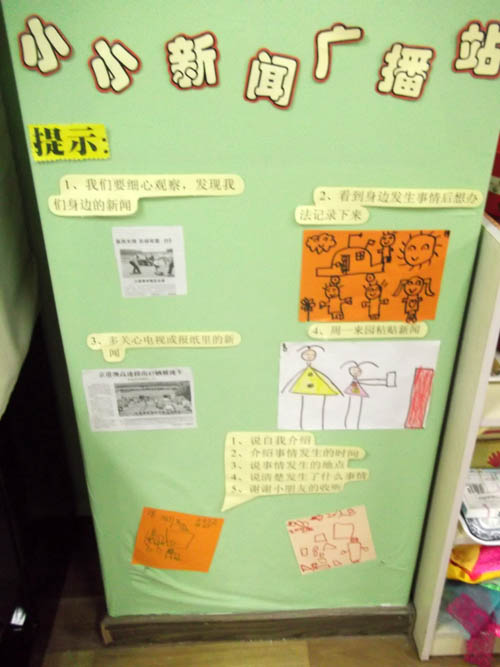 小小新闻广播站
提示:
1、我们要细心观察，发现我
们身边的新闻
2、看到身边发生事情后想办
法记录下来
3、多关心电视或报纸里的新
闻
4、周一来园粘贴新闻
1、说自我介绍
2、介绍事情发生的时间
3、说事情发生的地点
4、说清楚发生了什么事情
5、谢谢小朋友的收听